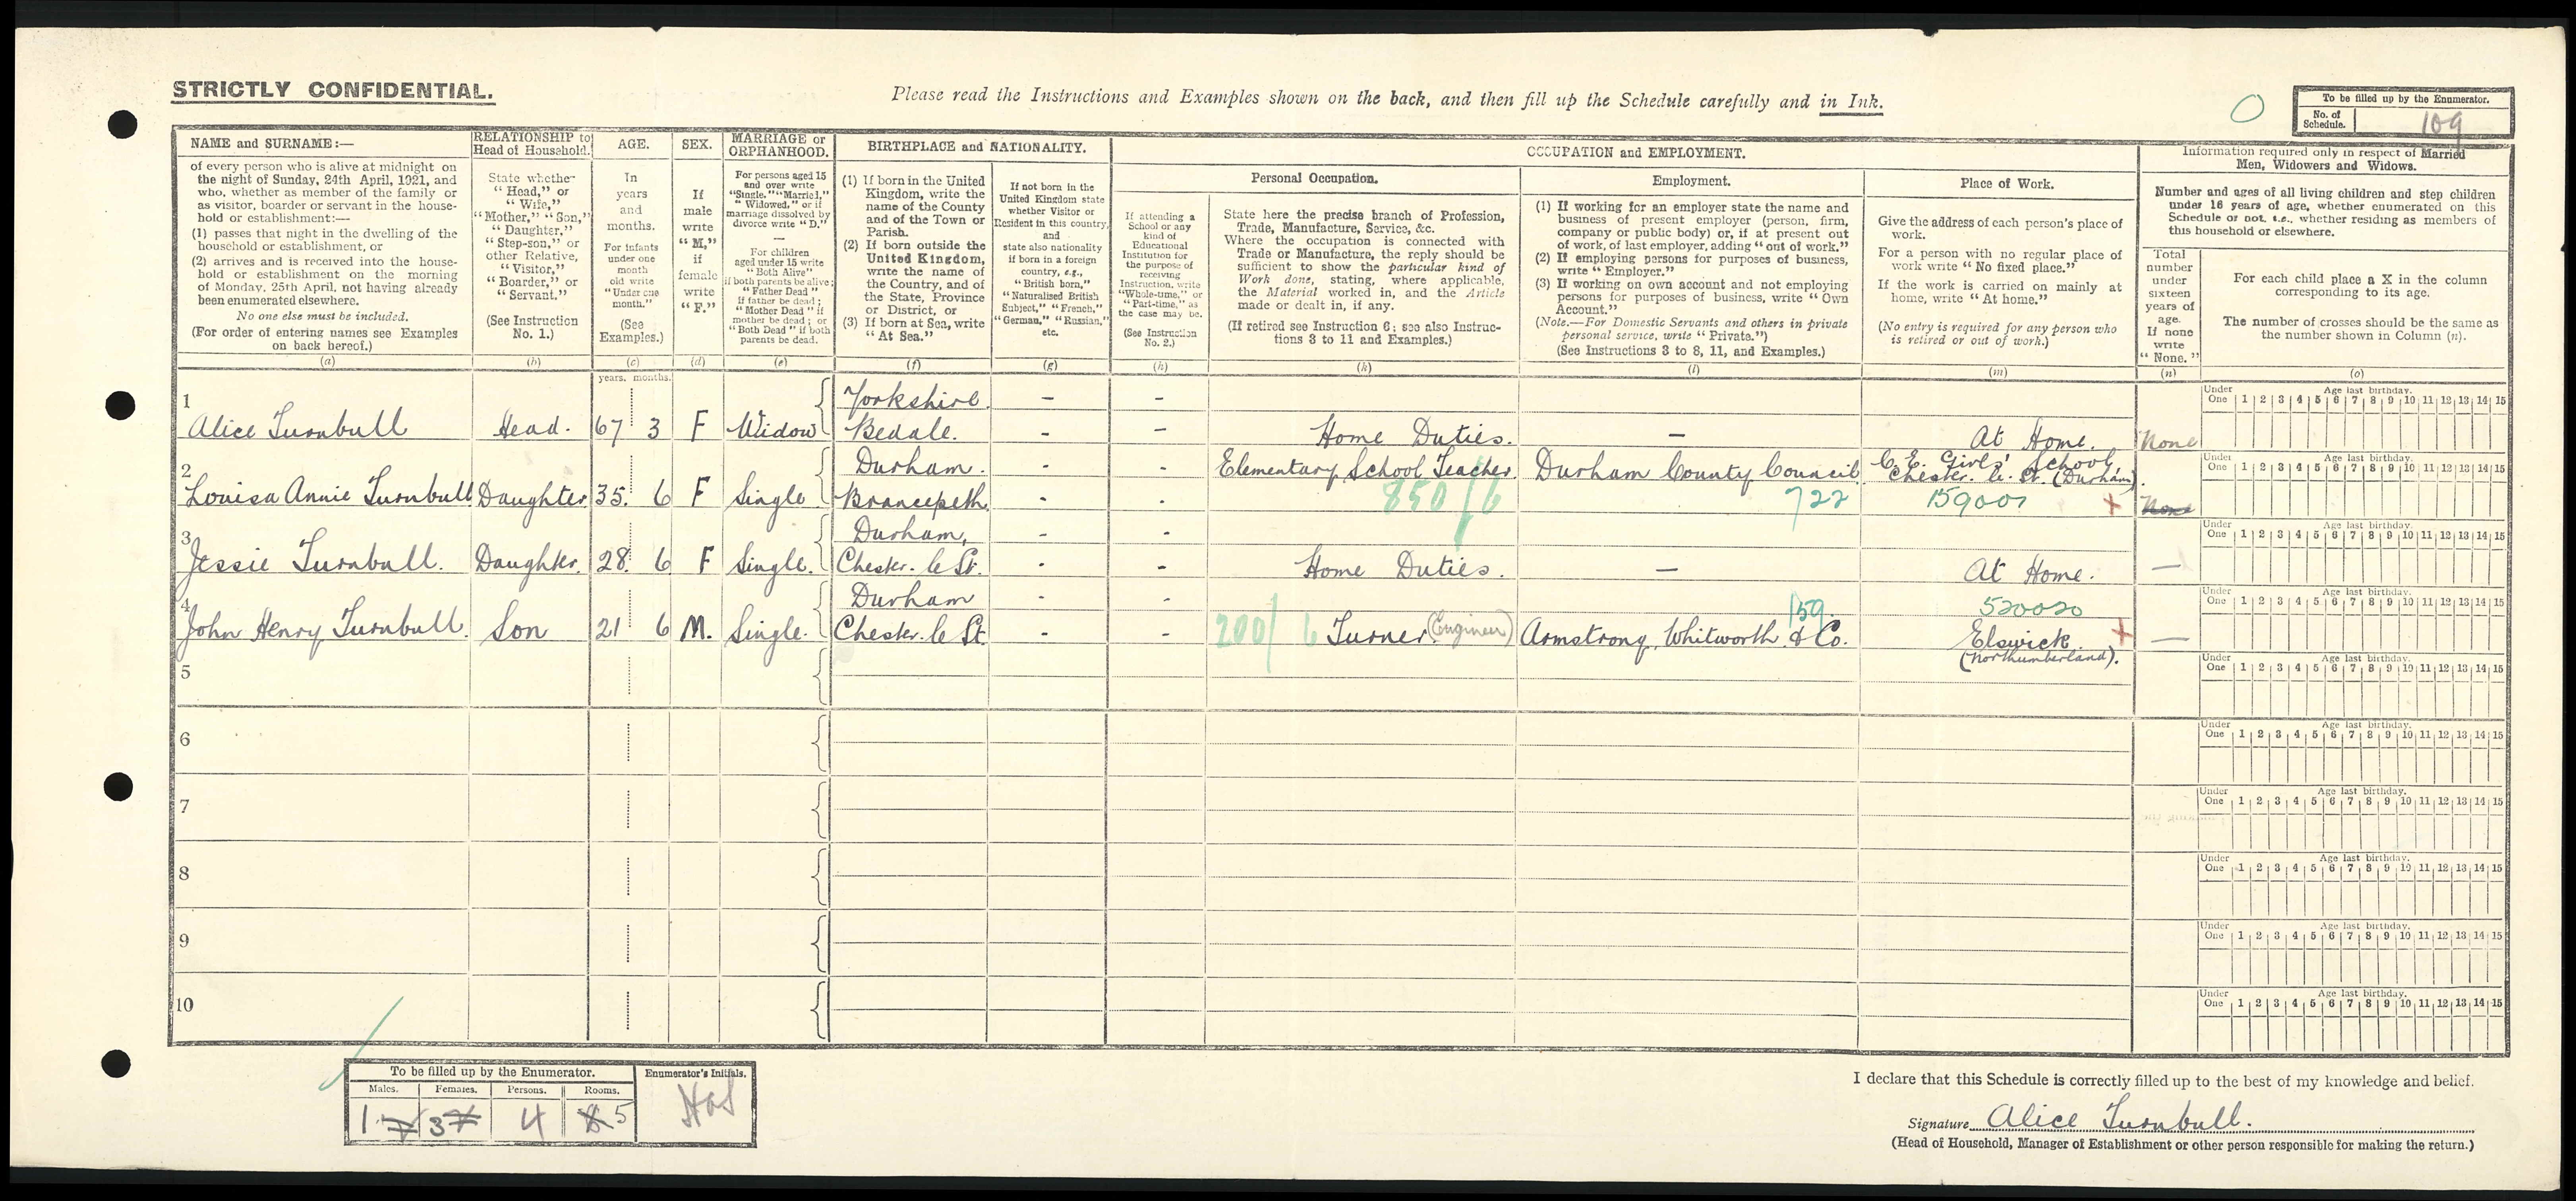 STRICTLY CONFIDENTIAL.
Please read the Instructions and Examples shown on the back, and then fill up the Schedule carefully and in Ink.
0
To be filled up by the Enumerator.
No. of Schedule. 109
NAME and SURNAME:—
of every person who is alive at midnight on
the night of Sunday, 24th April, 1921, and
who, whether as member of the family or
as visitor, boarder or servant in the house-
hold or establishment:—
(1) passes that night in the dwelling of the
household or establishment, or
(2) arrives and is received into the house-
hold or establishment on the morning
of Monday, 25th April, not having already
been enumerated elsewhere.
No one else must be included.
(For order of entering names see Examples
on back hereof.)
(a)
RELATIONSHIP to
Head of Household.
State whether
"Head," or
"Wife,"
"Mother," "Son,"
"Daughter,"
"Step-son," or
other Relative,
"Visitor,"
"Boarder," or
"Servant."
(See Instruction
No. 1.)
(b)
AGE.
In
years
and
months.
For infants
under one
month
old write
"Under one
month."
(See
Examples.)
(c)
SEX.
If
male
write
"M,"
if
female
write
"F."
(d)
MARRIAGE or
ORPHANHOOD.
For persons aged 15
and over write
"Single," "Married,"
"Widowed," or if
marriage dissolved by
divorce write "D."
—
For children
aged under 15 write
"Both Alive"
if both parents be alive;
"Father Dead"
if father be dead;
"Mother Dead" if
mother be dead; or
"Both Dead" if both
parents be dead.
(e)
BIRTHPLACE and NATIONALITY.
(1) If born in the United
Kingdom, write the
name of the County
and of the Town or
Parish.
(2) If born outside the
United Kingdom,
write the name of
the Country, and of
the State, Province
or District, or
(3) If born at Sea, write
"At Sea."
(f)
If not born in the
United Kingdom state
whether Visitor or
Resident in this country,
and
state also nationality
if born in a foreign
country, e.g.,
"British born,"
"Naturalised British
Subject," "French,"
"German," "Russian,"
etc.
(g)
OCCUPATION and EMPLOYMENT.
If attending a
School or any
kind of
Educational
Institution for
the purpose of
receiving
Instruction, write
"Whole-time," or
"Part-time," as
the case may be.
(See Instruction
No. 2.)
(h)
Personal Occupation.
State here the precise branch of Profession,
Trade, Manufacture, Service, &c.
Where the occupation is connected with
Trade or Manufacture, the reply should be
sufficient to show the particular kind of
Work done, stating, where applicable,
the Material worked in, and the Article
made or dealt in, if any.
(If retired see Instruction 6; see also Instruc-
tions 3 to 11 and Examples.)
(k)
Employment.
(1) If working for an employer state the name and
business of present employer (person, firm,
company or public body) or, if at present out
of work, of last employer, adding "out of work."
(2) If employing persons for purposes of business,
write "Employer."
(3) If working on own account and not employing
persons for purposes of business, write "Own
Account."
(Note.—For Domestic Servants and others in private
personal service, write "Private.")
(See Instructions 3 to 8, 11, and Examples.)
(l)
Place of Work.
Give the address of each person's place of
work.
For a person with no regular place of
work write "No fixed place."
If the work is carried on mainly at
home, write "At home."
(No entry is required for any person who
is retired or out of work.)
(m)
Information required only in respect of Married
Men, Widowers and Widows.
Number and ages of all living children and step children
under 16 years of age, whether enumerated on this
Schedule or not, i.e., whether residing as members of
this household or elsewhere.
Total
number
under
sixteen
years of
age.
If none
write
"None."
(n)
For each child place a X in the column
corresponding to its age.
The number of crosses should be the same as
the number shown in Column (n).
(o)
years. months.
1 Alice Turnbull Head. 67 3 F Widow Yorkshire. Bedale. - - - - Home Duties. — At Home. None
Under One Age last birthday. 1 2 3 4 5 6 7 8 9 10 11 12 13 14 15
2 Louisa Annie Turnbull Daughter 35. 6 F Single Durham. Brancepeth - - - - Elementary School Teacher. Durham County Council C.E. Girls' School, Chester. le. St. (Durham). None
850/6 722 159001 +
Under One Age last birthday. 1 2 3 4 5 6 7 8 9 10 11 12 13 14 15
3 Jessie Turnbull. Daughter. 28. 6 F Single. Durham, Chester. le St. - - - - Home Duties. — At Home. —
Under One Age last birthday. 1 2 3 4 5 6 7 8 9 10 11 12 13 14 15
4 John Henry Turnbull. Son 21 6 M. Single. Durham Chester. le St. - - - - 200/6 Turner. (Engineer) 159 Armstrong, Whitworth & Co. 520020 Elswick (Northumberland). + —
Under One Age last birthday. 1 2 3 4 5 6 7 8 9 10 11 12 13 14 15
5
Under One Age last birthday. 1 2 3 4 5 6 7 8 9 10 11 12 13 14 15
6
Under One Age last birthday. 1 2 3 4 5 6 7 8 9 10 11 12 13 14 15
7
Under One Age last birthday. 1 2 3 4 5 6 7 8 9 10 11 12 13 14 15
8
Under One Age last birthday. 1 2 3 4 5 6 7 8 9 10 11 12 13 14 15
9
Under One Age last birthday. 1 2 3 4 5 6 7 8 9 10 11 12 13 14 15
10
Under One Age last birthday. 1 2 3 4 5 6 7 8 9 10 11 12 13 14 15
To be filled up by the Enumerator. Enumerator's Initials.
Males. Females. Persons. Rooms.
1 3 4 5
I declare that this Schedule is correctly filled up to the best of my knowledge and belief.
Signature Alice Turnbull.
(Head of Household, Manager of Establishment or other person responsible for making the return.)